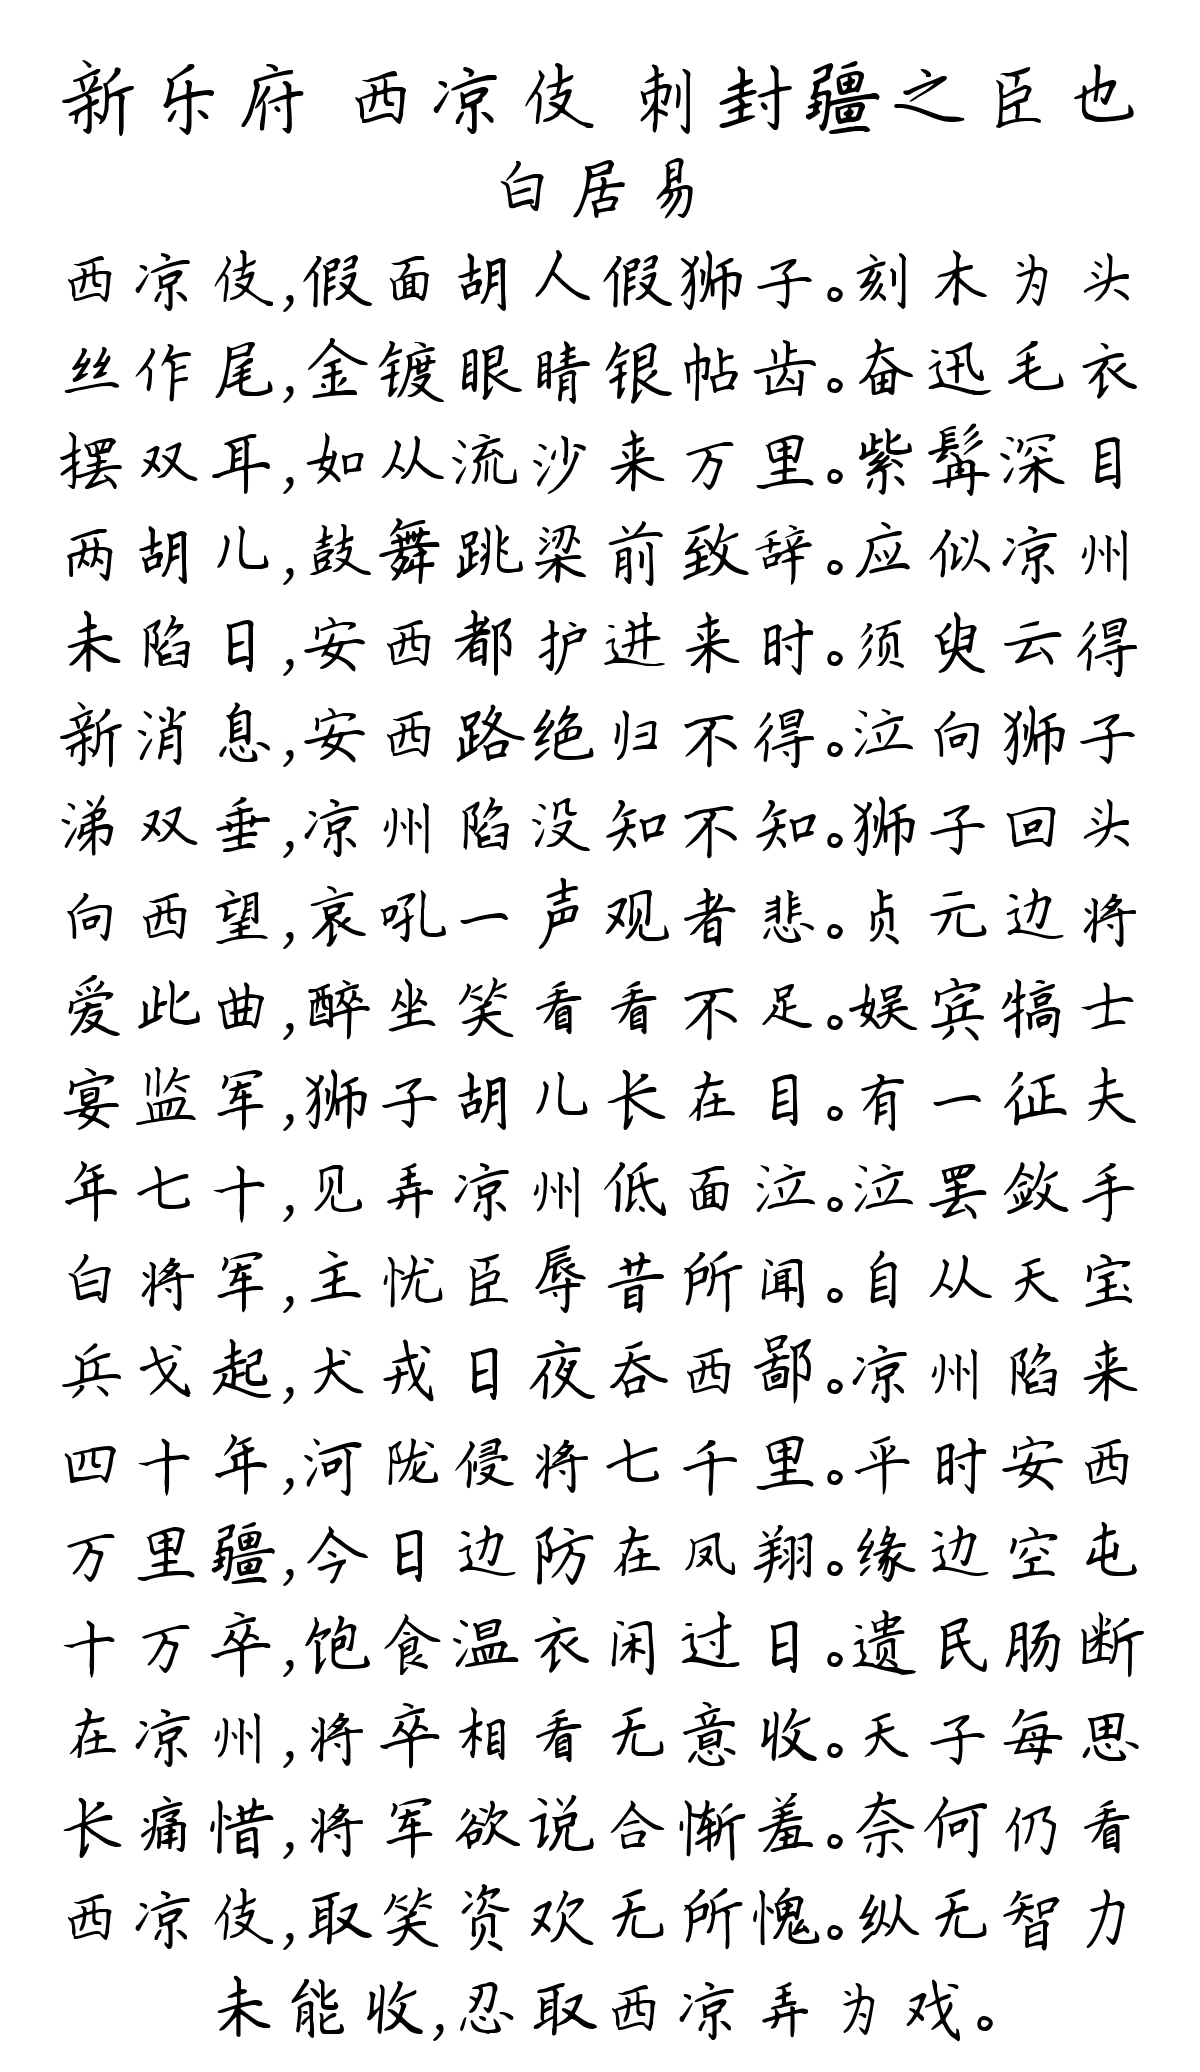 新乐府 西凉伎 刺封疆之臣也
白居易
西凉伎,假面胡人假狮子。刻木为头
丝作尾,金镀眼睛银帖齿。奋迅毛衣
摆双耳,如从流沙来万里。紫髯深目
两胡儿,鼓舞跳梁前致辞。应似凉州
未陷日,安西都护进来时。须臾云得
新消息,安西路绝归不得。泣向狮子
涕双垂,凉州陷没知不知。狮子回头
向西望,哀吼一声观者悲。贞元边将
爱此曲,醉坐笑看看不足。娱宾犒士
宴监军,狮子胡儿长在目。有一征夫
年七十,见弄凉州低面泣。泣罢敛手
白将军,主忧臣辱昔所闻。自从天宝
兵戈起,犬戎日夜吞西鄙。凉州陷来
四十年,河陇侵将七千里。平时安西
万里疆,今日边防在凤翔。缘边空屯
十万卒,饱食温衣闲过日。遗民肠断
在凉州,将卒相看无意收。天子每思
长痛惜,将军欲说合惭羞。奈何仍看
西凉伎,取笑资欢无所愧。纵无智力
未能收,忍取西凉弄为戏。